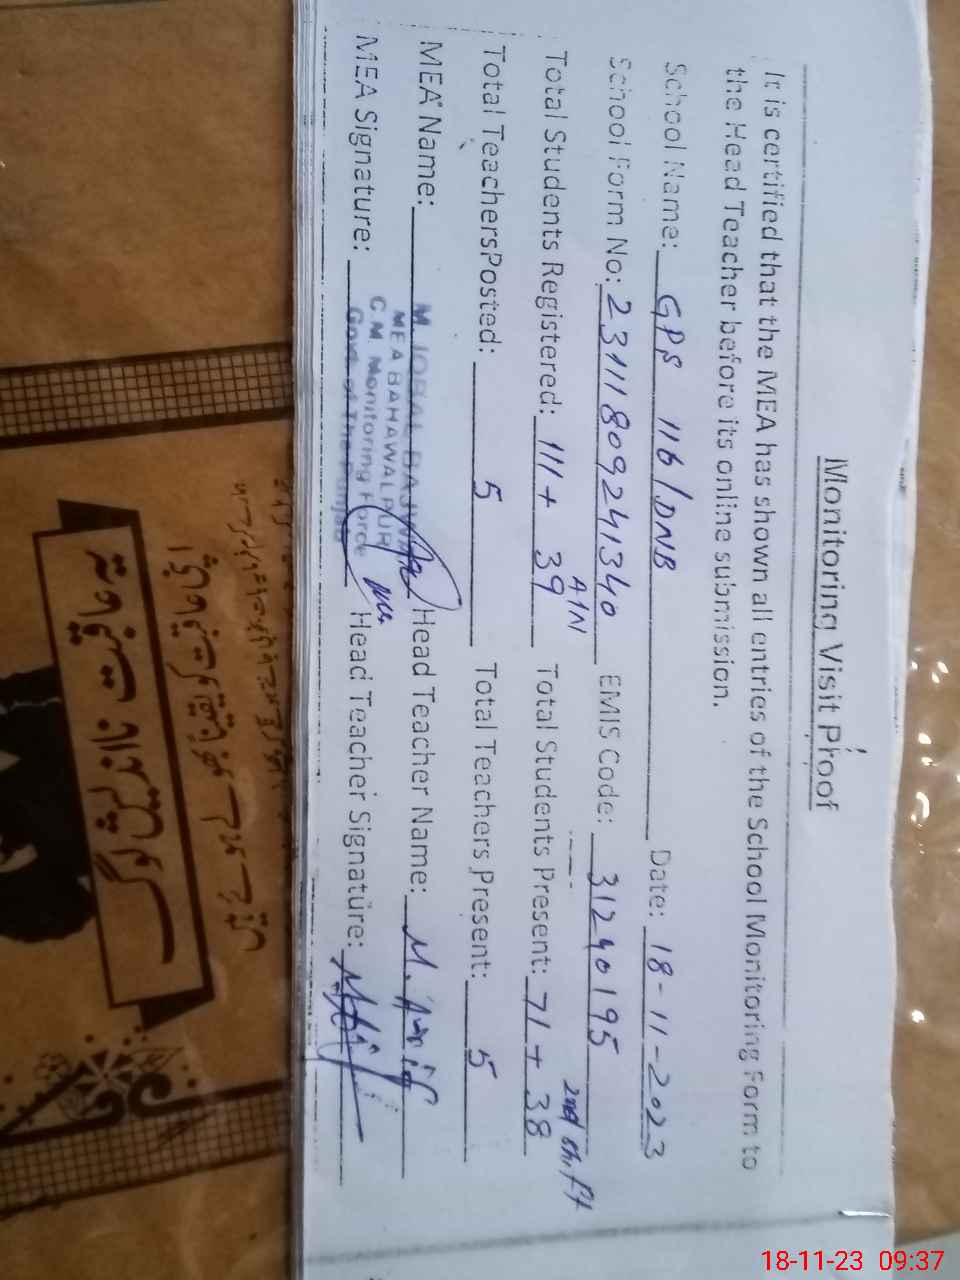 Monitoring Visit Proof
It is certified that the MEA has shown all entries of the School Monitoring Form to
the Head Teacher before its online submission.
School Name: GPS 116/DNB Date: 18-11-2023
School Form No: 23111809241340 EMIS Code: 31240195
A1N 2nd shift
Total Students Registered: 111 + 39 Total Students Present: 71 + 38
Total TeachersPosted: 5 Total Teachers Present: 5
MEA Name: M. IQBAL BAJWA Head Teacher Name: M.
MEA BAHAWALPUR
C.M. Monitoring Force
Govt. of The Punjab
MEA Signature: Head Teacher Signature:
اپنی عاقبت کو یقیناً بھولے ہوئے ہیں
یہ عاقبت نااندیش لوگ
18-11-23 09:37